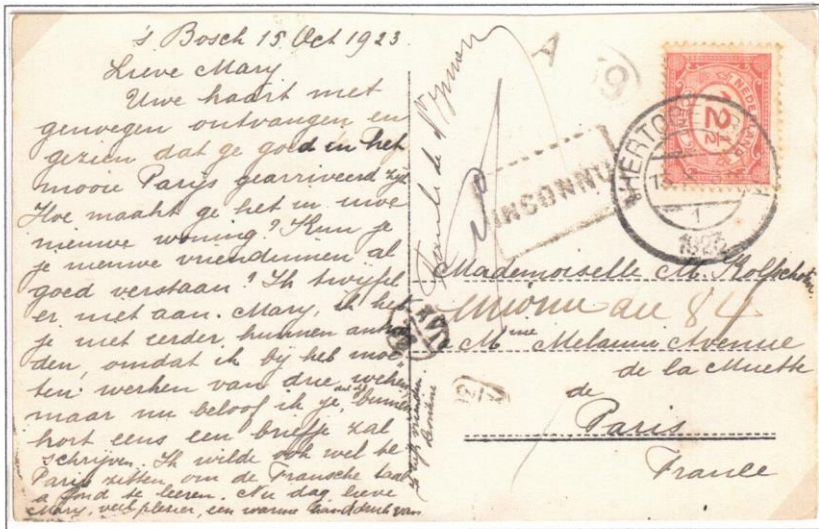 's Bosch 15 Oct 1923.
Lieve Mary
Uwe kaart met
genoegen ontvangen en
gezien dat ge goed in het
mooie Parijs gearriveerd zijt
Hoe maakt ge het in uwe
nieuwe woning? Kun je
je nieuwe vriendinnen al
goed verstaan? Ik twijfel
er niet aan. Mary, ik heb
je niet eerder kunnen antwoor
den, omdat ik bij het moe
ten werken van drie weken,
maar nu beloof ik je, binnen
kort eens een briefje zal
schrijven. Ik wilde ook wel te
Parijs zitten, om de Fransche taal
a fond te leeren. Nu dag lieve
Mary, veel plezier, een warme handdruk van
A
9
NEDERLAND
2½
HERTOGENB
1
1923
INCONNU
Mademoiselle M. Kolfschoten
inconnu au 84
Mme Melanin Avenue
de la Muette
de
Paris
France
XVI